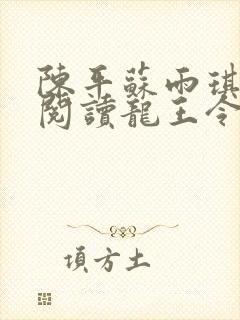 陳平蘇雨琪
閱讀龍王令
項方土